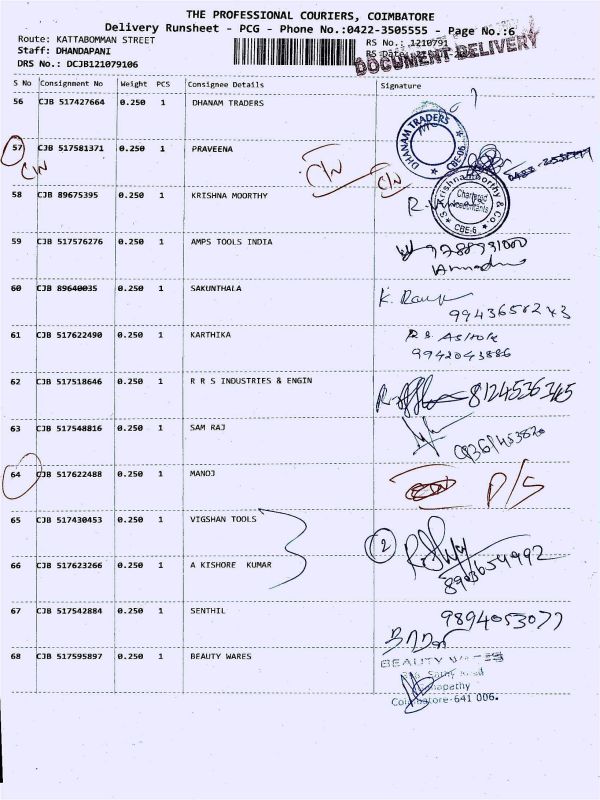 THE PROFESSIONAL COURIERS, COIMBATORE
Delivery Runsheet - PCG - Phone No.:0422-3505555 - Page No.:6
Route: KATTABOMMAN STREET
RS No.: 1210791
Staff: DHANDAPANI
RS Date:
DOCUMENT DELIVERY
DRS No.: DCJB121079106
S No Consignment No Weight PCS Consignee Details Signature
56 CJB 517427664 0.250 1 DHANAM TRADERS
DHANAM TRADERS CBE-06
57 CJB 517581371 0.250 1 PRAVEENA
C/N C/N C/N
58 CJB 89675395 0.250 1 KRISHNA MOORTHY
S. Krishnamoorthy & Co. Chartered Accountants CBE-6
59 CJB 517576276 0.250 1 AMPS TOOLS INDIA
60 CJB 89640035 0.250 1 SAKUNTHALA
61 CJB 517622490 0.250 1 KARTHIKA
R.S. ASHOK
9942043886
62 CJB 517518646 0.250 1 R R S INDUSTRIES & ENGIN
8124536345
63 CJB 517548816 0.250 1 SAM RAJ
64 CJB 517622488 0.250 1 MANOJ
D/S
65 CJB 517430453 0.250 1 VIGSHAN TOOLS
2
66 CJB 517623266 0.250 1 A KISHORE KUMAR
8903654992
67 CJB 517542884 0.250 1 SENTHIL
9894053077
68 CJB 517595897 0.250 1 BEAUTY WARES
BEAUTY WARES
Coimbatore-641 006.